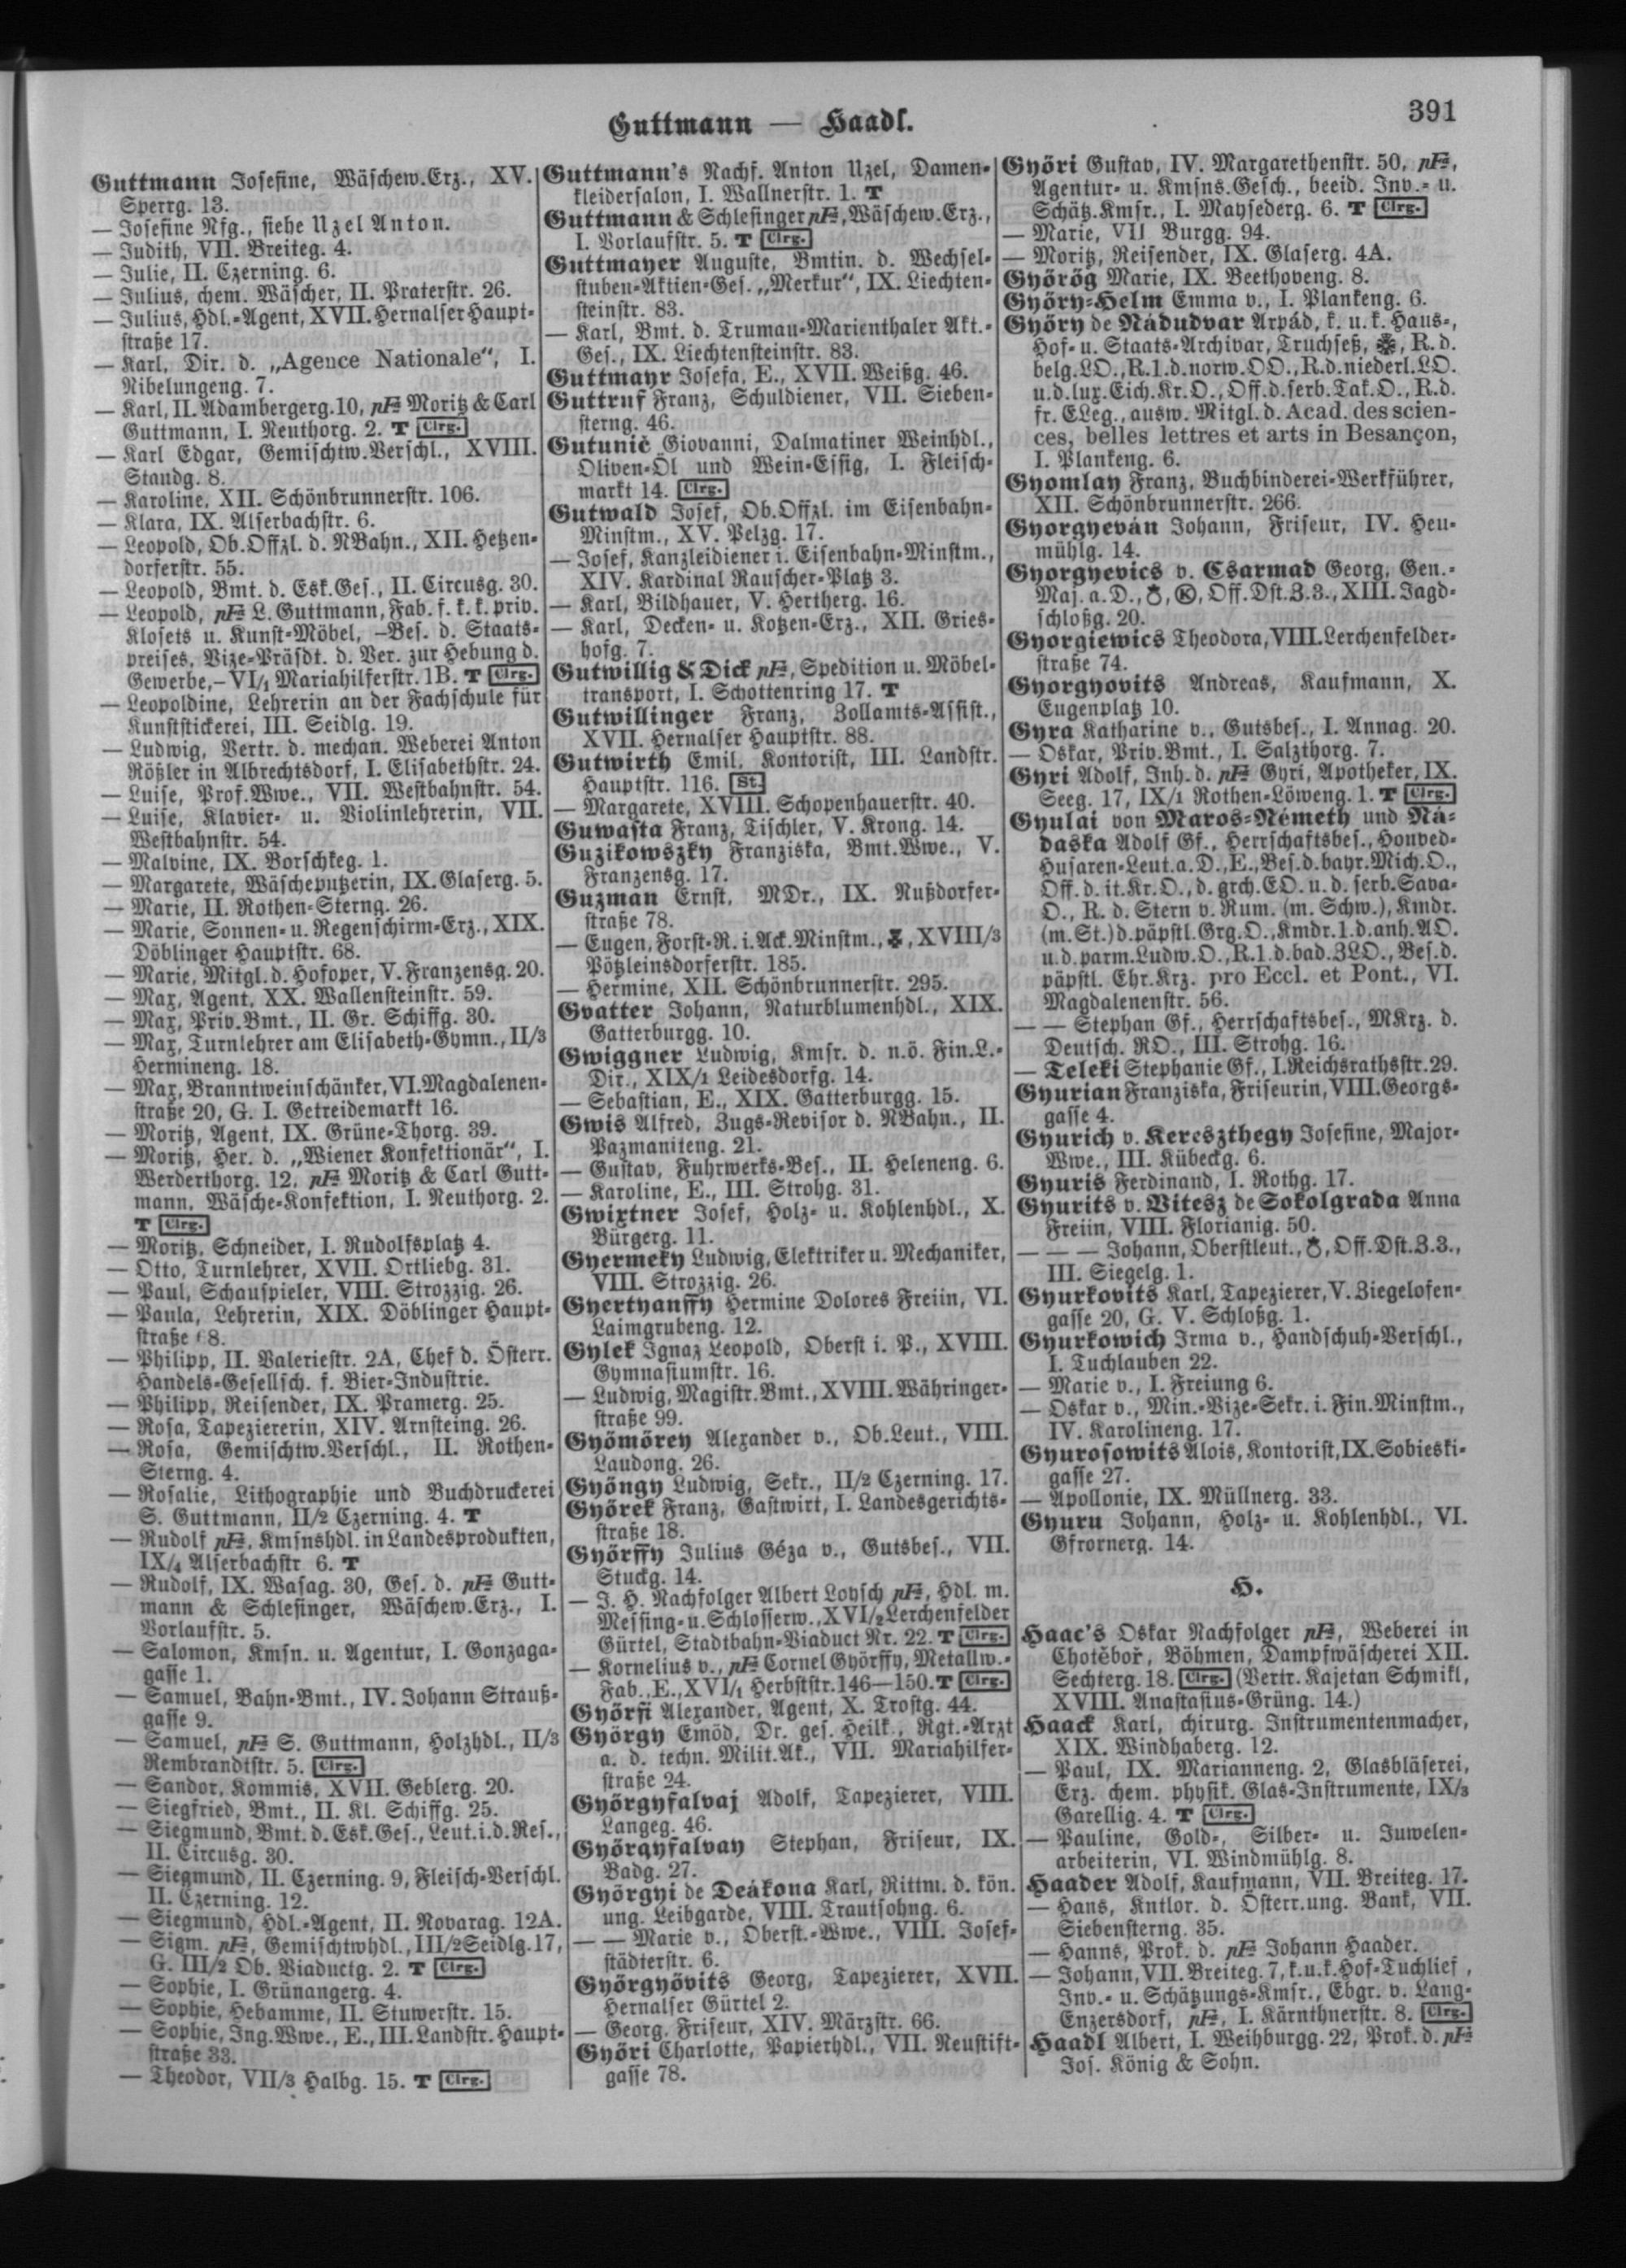 Guttmann — Haadl.
391
Guttmann Josefine, Wäschew.Erz., XV.
Sperrg. 13.
— Josefine Nfg., siehe Uzel Anton.
— Judith, VII. Breiteg. 4.
— Julie, II. Czerning. 6.
— Julius, chem. Wäscher, II. Praterstr. 26.
— Julius, Hdl.-Agent, XVII. Hernalser Haupt-
straße 17.
— Karl, Dir. d. „Agence Nationale“, I.
Nibelungeng. 7.
— Karl, II. Adambergerg. 10, pF Moritz & Carl
Guttmann, I. Neuthorg. 2. T Clrg.
— Karl Edgar, Gemischtw.Verschl., XVIII.
Staudg. 8.
— Karoline, XII. Schönbrunnerstr. 106.
— Klara, IX. Alserbachstr. 6.
— Leopold, Ob.Offzl. d. NBahn., XII. Hetzen-
dorferstr. 55.
— Leopold, Bmt. d. Esk.Ges., II. Circusg. 30.
— Leopold, pF L. Guttmann, Fab. f. k. k. priv.
Klosets u. Kunst-Möbel, –Bes. d. Staats-
preises, Vize-Präsdt. d. Ver. zur Hebung d.
Gewerbe,– VI/1 Mariahilferstr. 1B. T Clrg.
— Leopoldine, Lehrerin an der Fachschule für
Kunststickerei, III. Seidlg. 19.
— Ludwig, Vertr. d. mechan. Weberei Anton
Rößler in Albrechtsdorf, I. Elisabethstr. 24.
— Luise, Prof.Wwe., VII. Westbahnstr. 54.
— Luise, Klavier- u. Violinlehrerin, VII.
Westbahnstr. 54.
— Malvine, IX. Borschkeg. 1.
— Margarete, Wäscheputzerin, IX. Glaserg. 5.
— Marie, II. Rothen-Sterng. 26.
— Marie, Sonnen- u. Regenschirm-Erz., XIX.
Döblinger Hauptstr. 68.
— Marie, Mitgl. d. Hofoper, V. Franzensg. 20.
— Max, Agent, XX. Wallensteinstr. 59.
— Max, Priv.Bmt., II. Gr. Schiffg. 30.
— Max, Turnlehrer am Elisabeth-Gymn., II/3
Hermineng. 18.
— Max, Branntweinschänker, VI. Magdalenen-
straße 20, G. I. Getreidemarkt 16.
— Moritz, Agent, IX. Grüne-Thorg. 39.
— Moritz, Her. d. „Wiener Konfektionär“, I.
Werderthorg. 12, pF Moritz & Carl Gutt-
mann, Wäsche-Konfektion, I. Neuthorg. 2.
T Clrg.
— Moritz, Schneider, I. Rudolfsplatz 4.
— Otto, Turnlehrer, XVII. Ortliebg. 31.
— Paul, Schauspieler, VIII. Strozzig. 26.
— Paula, Lehrerin, XIX. Döblinger Haupt-
straße 8.
— Philipp, II. Valeriestr. 2A, Chef d. Österr.
Handels-Gesellsch. f. Bier-Industrie.
— Philipp, Reisender, IX. Pramerg. 25.
— Rosa, Tapeziererin, XIV. Arnsteing. 26.
— Rosa, Gemischtw.Verschl., II. Rothen-
Sterng. 4.
— Rosalie, Lithographie und Buchdruckerei
S. Guttmann, II/2 Czerning. 4. T
— Rudolf pF, Kmsnshdl. in Landesprodukten,
IX/4 Alserbachstr 6. T
— Rudolf, IX. Wasag. 30, Ges. d. pF Gutt-
mann & Schlesinger, Wäschew.Erz., I.
Vorlaufstr. 5.
— Salomon, Kmsn. u. Agentur, I. Gonzaga-
gasse 1.
— Samuel, Bahn-Bmt., IV. Johann Strauß-
gasse 9.
— Samuel, pF S. Guttmann, Holzhdl., II/3
Rembrandtstr. 5. Clrg.
— Sandor, Kommis, XVII. Geblerg. 20.
— Siegfried, Bmt., II. Kl. Schiffg. 25.
— Siegmund, Bmt. d. Esk.Ges., Leut. i. d. Res.,
II. Circusg. 30.
— Siegmund, II. Czerning. 9, Fleisch-Verschl.
II. Czerning. 12.
— Siegmund, Hdl.-Agent, II. Novarag. 12A.
— Sigm. pF, Gemischtwhdl., III/2 Seidlg. 17,
G. III/2 Ob. Viaductg. 2. T Clrg.
— Sophie, I. Grünangerg. 4.
— Sophie, Hebamme, II. Stuwerstr. 15.
— Sophie, Ing.Wwe., E., III. Landstr. Haupt-
straße 33.
— Theodor, VII/3 Halbg. 15. T Clrg.
Guttmann's Nachf. Anton Uzel, Damen-
kleidersalon, I. Wallnerstr. 1. T
Guttmann & Schlesinger pF, Wäschew.Erz.,
I. Vorlaufstr. 5. T Clrg.
Guttmayer Auguste, Bmtin. d. Wechsel-
stuben-Aktien-Ges. „Merkur“, IX. Liechten-
steinstr. 83.
— Karl, Bmt. d. Trumau-Marienthaler Akt.-
Ges., IX. Liechtensteinstr. 83.
Guttmayr Josefa, E., XVII. Weißg. 46.
Guttruf Franz, Schuldiener, VII. Sieben-
sterng. 46.
Gutunić Giovanni, Dalmatiner Weinhdl.,
Oliven-Öl und Wein-Essig, I. Fleisch-
markt 14. Clrg.
Gutwald Josef, Ob.Offzl. im Eisenbahn-
Minstm., XV. Pelzg. 17.
— Josef, Kanzleidiener i. Eisenbahn-Minstm.,
XIV. Kardinal Rauscher-Platz 3.
— Karl, Bildhauer, V. Hertherg. 16.
— Karl, Decken- u. Kotzen-Erz., XII. Gries-
hofg. 7.
Gutwillig & Dick pF, Spedition u. Möbel-
transport, I. Schottenring 17. T
Gutwillinger Franz, Zollamts-Assist.,
XVII. Hernalser Hauptstr. 88.
Gutwirth Emil, Kontorist, III. Landstr.
Hauptstr. 116. St.
— Margarete, XVIII. Schopenhauerstr. 40.
Guwasta Franz, Tischler, V. Krong. 14.
Guzikowszky Franziska, Bmt.Wwe., V.
Franzensg. 17.
Guzman Ernst, MDr., IX. Nußdorfer-
straße 78.
— Eugen, Forst-R. i. Ack.Minstm., XVIII/3
Pötzleinsdorferstr. 185.
— Hermine, XII. Schönbrunnerstr. 295.
Gvatter Johann, Naturblumenhdl., XIX.
Gatterburgg. 10.
Gwiggner Ludwig, Kmsr. d. n.ö. Fin.L.-
Dir., XIX/1 Leidesdorfg. 14.
— Sebastian, E., XIX. Gatterburgg. 15.
Gwis Alfred, Zugs-Revisor d. NBahn., II.
Pazmaniteng. 21.
— Gustav, Fuhrwerks-Bes., II. Heleneng. 6.
— Karoline, E., III. Strohg. 31.
Gwixtner Josef, Holz- u. Kohlenhdl., X.
Bürgerg. 11.
Gyermeky Ludwig, Elektriker u. Mechaniker,
VIII. Strozzig. 26.
Gyertyanffy Hermine Dolores Freiin, VI.
Laimgrubeng. 12.
Gylek Ignaz Leopold, Oberst i. P., XVIII.
Gymnasiumstr. 16.
— Ludwig, Magistr.Bmt., XVIII. Währinger-
straße 99.
Gyömörey Alexander v., Ob.Leut., VIII.
Laudong. 26.
Gyöngy Ludwig, Sekr., II/2 Czerning. 17.
Györek Franz, Gastwirt, I. Landesgerichts-
straße 18.
Györffy Julius Géza v., Gutsbes., VII.
Stuckg. 14.
— J. H. Nachfolger Albert Loysch pF, Hdl. m.
Messing- u. Schlosserw., XVI/2 Lerchenfelder
Gürtel, Stadtbahn-Viaduct Nr. 22. T Clrg.
— Kornelius v., pF Cornel Györffy, Metallw.-
Fab., E., XVI/1 Herbststr. 146—150. T Clrg.
Györfi Alexander, Agent, X. Trostg. 44.
György Emöd, Dr. ges. Heilk., Rgt.-Arzt
a. d. techn. Milit.Ak., VII. Mariahilfer-
straße 24.
Györgyfalvaj Adolf, Tapezierer, VIII.
Langeg. 46.
Györgyfalvay Stephan, Friseur, IX.
Badg. 27.
Györgyi de Deákona Karl, Rittm. d. kön.
ung. Leibgarde, VIII. Trautsohng. 6.
— — Marie v., Oberst.-Wwe., VIII. Josef-
städterstr. 6.
Györgyövits Georg, Tapezierer, XVII.
Hernalser Gürtel 2.
— Georg, Friseur, XIV. Märzstr. 66.
Györi Charlotte, Papierhdl., VII. Neustift-
gasse 78.
Györi Gustav, IV. Margarethenstr. 50, pF,
Agentur- u. Kmsns.Gesch., beeid. Inv.- u.
Schätz.Kmsr., I. Maysederg. 6. T Clrg.
— Marie, VII Burgg. 94.
— Moritz, Reisender, IX. Glaserg. 4A.
Györög Marie, IX. Beethoveng. 8.
Györy-Helm Emma v., I. Plankeng. 6.
Györy de Nádudvar Arpád, k. u. k. Haus-,
Hof- u. Staats-Archivar, Truchseß, R. d.
belg. LO., R. 1. d. norw. OO., R. d. niederl. LO.
u. d. lux. Eich.Kr.O., Off. d. serb. Tak.O., R. d.
fr. ELeg., ausw. Mitgl. d. Acad. des scien-
ces, belles lettres et arts in Besançon,
I. Plankeng. 6.
Gyomlay Franz, Buchbinderei-Werkführer,
XII. Schönbrunnerstr. 266.
Gyorgyeván Johann, Friseur, IV. Heu-
mühlg. 14.
Gyorgyevics v. Csarmad Georg, Gen.-
Maj. a. D., Ⓚ, Off. Dst. Z. 3., XIII. Jagd-
schloßg. 20.
Gyorgiewics Theodora, VIII. Lerchenfelder-
straße 74.
Gyorgyovits Andreas, Kaufmann, X.
Eugenplatz 10.
Gyra Katharine v., Gutsbes., I. Annag. 20.
— Oskar, Priv.Bmt., I. Salzthorg. 7.
Gyri Adolf, Inh. d. pF Gyri, Apotheker, IX.
Seeg. 17, IX/1 Rothen-Löweng. 1. T Clrg.
Gyulai von Maros-Németh und Ná-
daska Adolf Gf., Herrschaftsbes., Honved-
Husaren-Leut. a. D., E., Bes. d. bayr. Mich. O.,
Off. d. it. Kr. O., d. grch. EO. u. d. serb. Sava-
O., R. d. Stern v. Rum. (m. Schw.), Kmdr.
(m. St.) d. päpstl. Grg. O., Kmdr. 1. d. anh. AO.
u. d. parm. Ludw. O., R. 1. d. bad. ZLO., Bes. d.
päpstl. Ehr.Krz. pro Eccl. et Pont., VI.
Magdalenenstr. 56.
— — Stephan Gf., Herrschaftsbes., MKrz. d.
Deutsch. RO., III. Strohg. 16.
— Teleki Stephanie Gf., I. Reichsrathsstr. 29.
Gyurian Franziska, Friseurin, VIII. Georgs-
gasse 4.
Gyurich v. Kereszthegy Josefine, Major-
Wwe., III. Kübeckg. 6.
Gyuris Ferdinand, I. Rothg. 17.
Gyurits v. Vitesz de Sokolgrada Anna
Freiin, VIII. Florianig. 50.
— — — Johann, Oberstleut., Off. Dst. Z. 3.,
III. Siegelg. 1.
Gyurkovits Karl, Tapezierer, V. Ziegelofen-
gasse 20, G. V. Schloßg. 1.
Gyurkowich Irma v., Handschuh-Verschl.,
I. Tuchlauben 22.
— Marie v., I. Freiung 6.
— Oskar v., Min.-Vize-Sekr. i. Fin.Minstm.,
IV. Karolineng. 17.
Gyurosowits Alois, Kontorist, IX. Sobieski-
gasse 27.
— Apollonie, IX. Müllnerg. 33.
Gyuru Johann, Holz- u. Kohlenhdl., VI.
Gfrornerg. 14.
H.
Haac's Oskar Nachfolger pF, Weberei in
Chotěboř, Böhmen, Dampfwäscherei XII.
Sechterg. 18. Clrg. (Vertr. Kajetan Schmikl,
XVIII. Anastasius-Grüng. 14.)
Haack Karl, chirurg. Instrumentenmacher,
XIX. Windhaberg. 12.
— Paul, IX. Marianneng. 2, Glasbläserei,
Erz. chem. physik. Glas-Instrumente, IX/3
Garellig. 4. T Clrg.
— Pauline, Gold-, Silber- u. Juwelen-
arbeiterin, VI. Windmühlg. 8.
Haader Adolf, Kaufmann, VII. Breiteg. 17.
— Hans, Kntlor. d. Österr.ung. Bank, VII.
Siebensterng. 35.
— Hanns, Prok. d. pF Johann Haader.
— Johann, VII. Breiteg. 7, k. u. k. Hof-Tuchlief ,
Inv.- u. Schätzungs-Kmsr., Ebgr. v. Lang-
Enzersdorf, pF, I. Kärnthnerstr. 8. Clrg.
Haadl Albert, I. Weihburgg. 22, Prok. d. pF
Jos. König & Sohn.